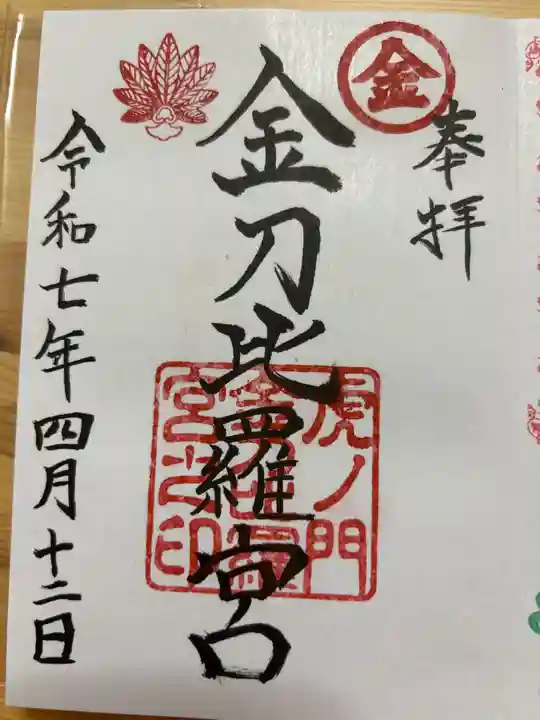 金
奉拝
金刀比羅宮
虎ノ門
金刀比羅
宮之印
令和七年四月十二日